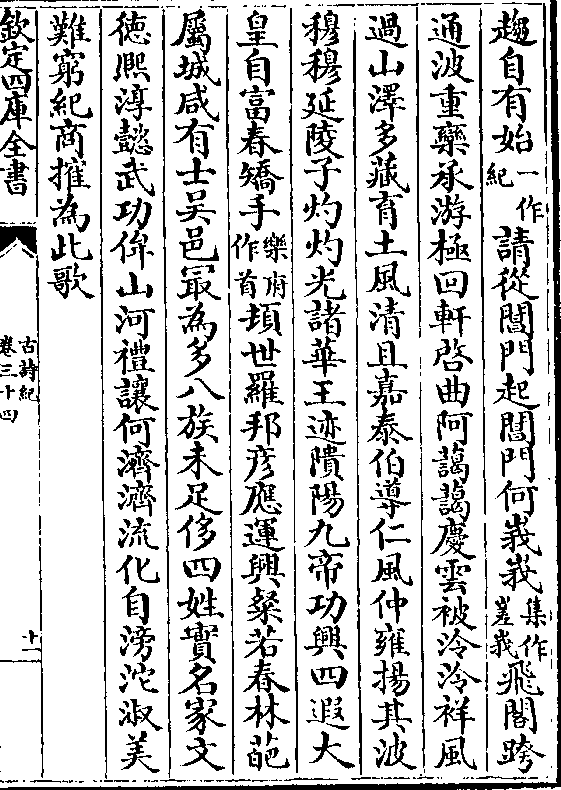 趨自有始一作紀請從閶門起閶門何峩峩集作嵳峩飛閣跨
通波重欒承游極回軒啓曲阿藹藹慶雲被泠泠祥風
過山澤多藏育土風清且嘉泰伯導仁風仲雍揚其波
穆穆延陵子灼灼光諸華王迹隤陽九帝功興四遐大
皇自富春矯手樂府作首頓世羅邦彦應運興粲若春林葩
屬城咸有士吴邑最為多八族未足侈四姓實名家文
徳熈淳懿武功侔山河禮讓何濟濟流化自滂沱淑美
難窮紀商搉為此歌
欽定四庫全書
古詩紀
卷三十四
十一